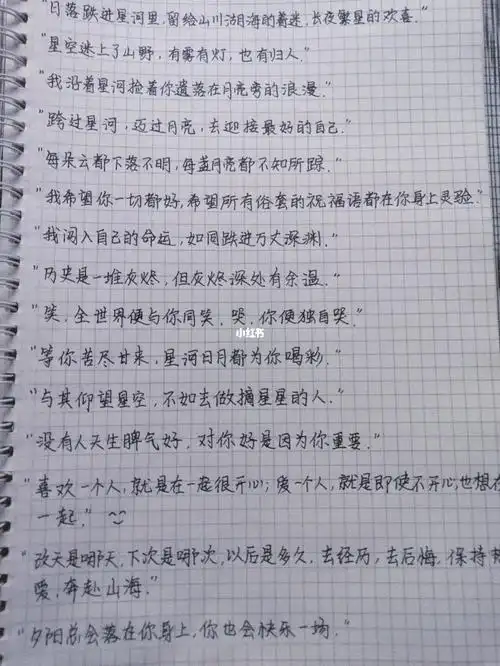 "日落跌进星河里,留给山川湖海的着迷,长夜繁星的欢喜."
"星空迷上了山野,有雾有灯,也有归人."
"我沿着星河捡着你遗落在月亮旁的浪漫."
"跨过星河,迈过月亮,去迎接最好的自己."
"每朵云都下落不明,每盏月亮都不知所踪."
"我希望你一切都好,希望所有俗套的祝福语都在你身上灵验."
"我闯入自己的命运,如同跌进万丈深渊."
"历史是一堆灰烬,但灰烬深处有余温."
"笑,全世界便与你同笑.哭,你便独自哭."
小红书
"等你苦尽甘来,星河日月都为你喝彩."
"与其仰望星空,不如去做摘星星的人."
"没有人天生脾气好,对你好是因为你重要."
"喜欢一个人,就是在一起很开心;爱一个人,就是即使不开心,也想在
一起."
"改天是哪天,下次是哪次,以后是多久.去经历,去后悔.保持
爱,奔赴山海."
"夕阳总会落在你身上,你也会快乐一场."